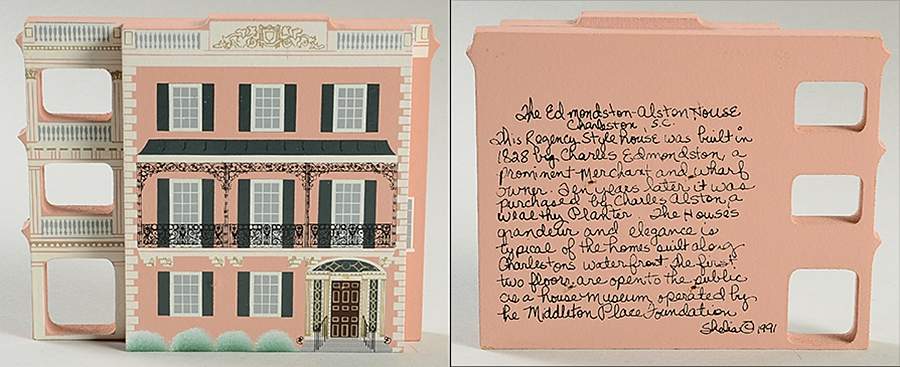 The Edmondston-Alston House
Charleston, S.C.
This Regency Style house was built in
1828 by Charles Edmondston, a
prominent Merchant and wharf
owner. Ten years later it was
purchased by Charles Alston, a
wealthy Planter. The House's
grandeur and elegance is
typical of the homes built along
Charleston's waterfront. The first
two floors are open to the public
as a house museum operated by
the Middleton Place Foundation
Shelia © 1991